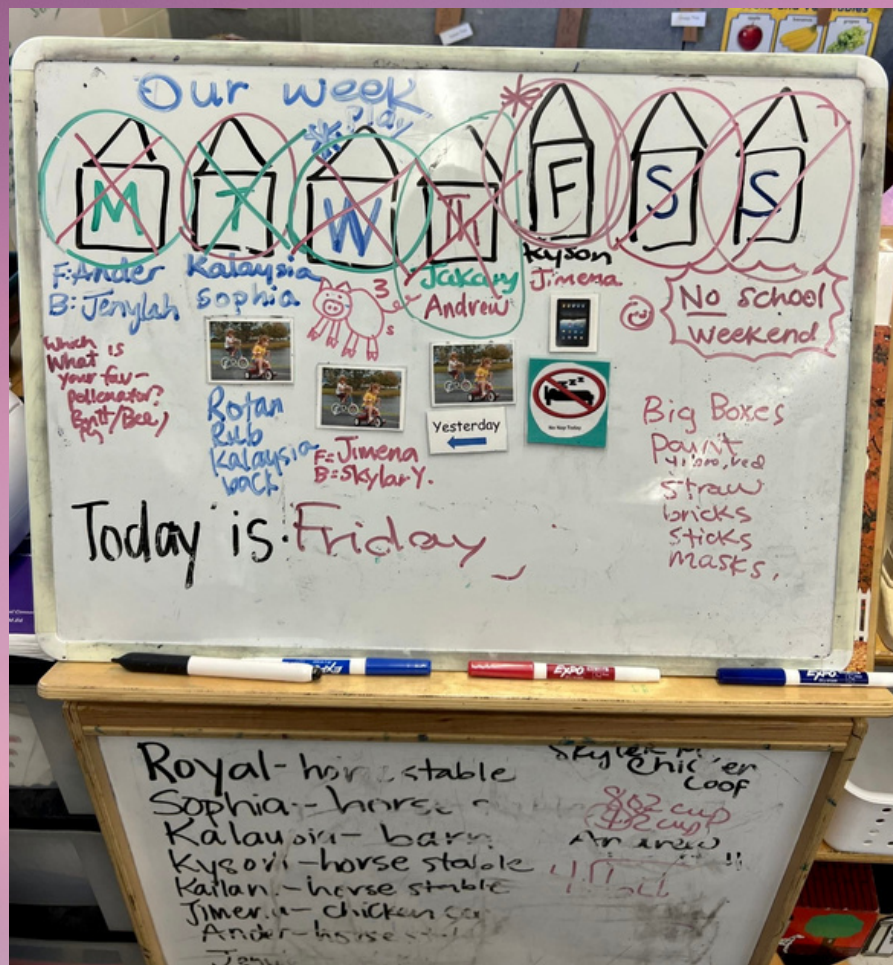 Our week
Play
M T W Th F S S
F: Ander
B: Jenylah
Kalaysia
Sophia
3
s
Jakary
Andrew
Kyson
Jimena
No school
weekend
Which
What is
your fav-
pollenator?
Rotan
Rub
Kalaysia
back
F= Jimena
B= Skylar Y.
Yesterday
No Nap Today
Big Boxes
Paint
straw
bricks
sticks
masks.
Today is: Friday
EXPO
EXPO
EXPO
Royal - horse stable
Sophia - horse
Kalaysia - barn
Kyson - horse stable
Kailan - horse stable
Jimena - chicken
Ander - horse
Coop
cup
cup
Andrew